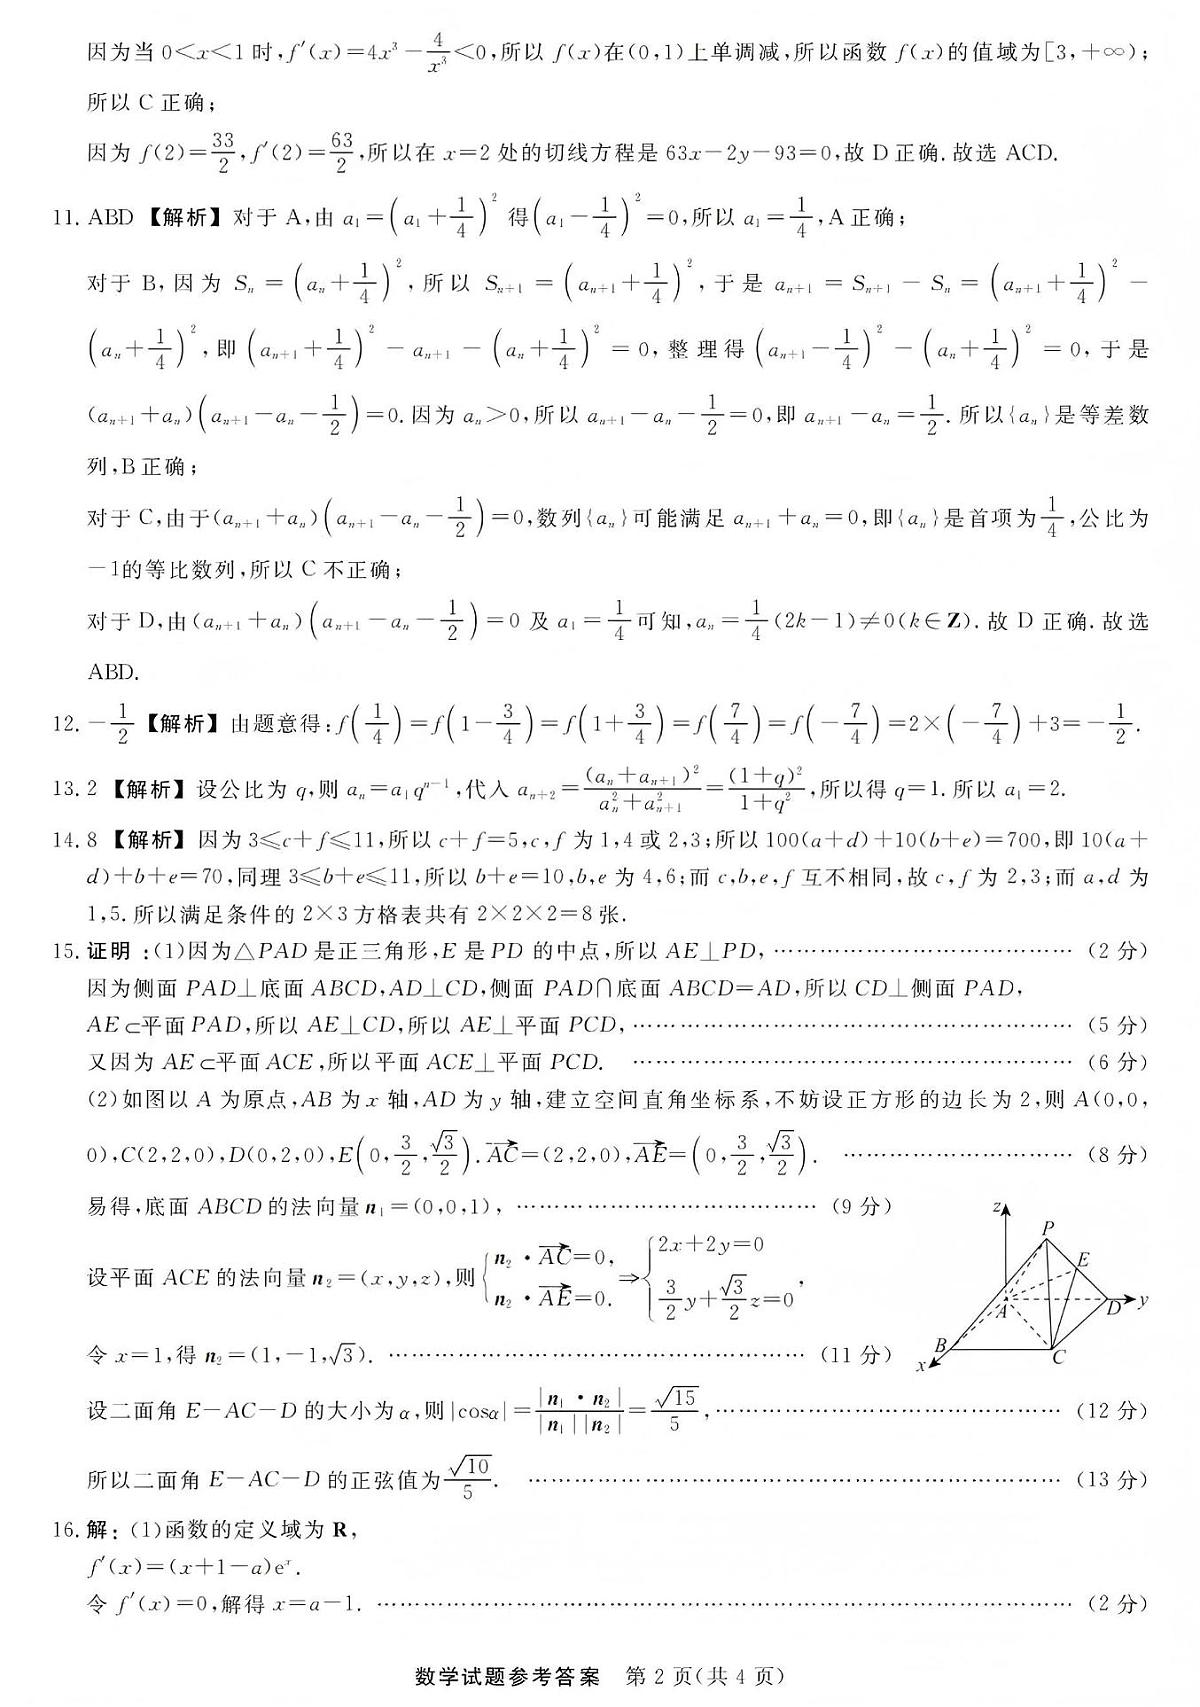 因为当 0<x<1 时,f′(x)=4x³−4/x³<0,所以 f(x)在(0,1)上单调减,所以函数 f(x)的值域为[3,+∞);
所以 C 正确;
因为 f(2)=33/2,f′(2)=63/2,所以在 x=2 处的切线方程是 63x−2y−93=0,故 D 正确.故选 ACD.
11. ABD 【解析】对于 A,由 a₁=(a₁+1/4)² 得(a₁−1/4)²=0,所以 a₁=1/4,A 正确;
对于 B,因为 Sₙ=(aₙ+1/4)²,所以 Sₙ₊₁=(aₙ₊₁+1/4)²,于是 aₙ₊₁=Sₙ₊₁−Sₙ=(aₙ₊₁+1/4)²−
(aₙ+1/4)²,即(aₙ₊₁+1/4)²−aₙ₊₁−(aₙ+1/4)²=0,整理得(aₙ₊₁−1/4)²−(aₙ+1/4)²=0,于是
(aₙ₊₁+aₙ)(aₙ₊₁−aₙ−1/2)=0.因为 aₙ>0,所以 aₙ₊₁−aₙ−1/2=0,即 aₙ₊₁−aₙ=1/2.所以{aₙ}是等差数
列,B 正确;
对于 C,由于(aₙ₊₁+aₙ)(aₙ₊₁−aₙ−1/2)=0,数列{aₙ}可能满足 aₙ₊₁+aₙ=0,即{aₙ}是首项为1/4,公比为
−1的等比数列,所以 C 不正确;
对于 D,由(aₙ₊₁+aₙ)(aₙ₊₁−aₙ−1/2)=0 及 a₁=1/4可知,aₙ=1/4(2k−1)≠0(k∈Z).故 D 正确.故选
ABD.
12. −1/2【解析】由题意得:f(1/4)=f(1−3/4)=f(1+3/4)=f(7/4)=f(−7/4)=2×(−7/4)+3=−1/2.
13. 2 【解析】设公比为 q,则 aₙ=a₁qⁿ⁻¹,代入 aₙ₊₂=(aₙ+aₙ₊₁)²/(aₙ²+aₙ₊₁²)=(1+q)²/(1+q²),所以得 q=1.所以 a₁=2.
14. 8 【解析】因为 3⩽c+f⩽11,所以 c+f=5,c,f 为 1,4 或 2,3;所以 100(a+d)+10(b+e)=700,即 10(a+
d)+b+e=70,同理 3⩽b+e⩽11,所以 b+e=10,b,e 为 4,6;而 c,b,e,f 互不相同,故 c,f 为 2,3;而 a,d 为
1,5.所以满足条件的 2×3 方格表共有 2×2×2=8 张.
15. 证明:(1)因为△PAD 是正三角形,E 是 PD 的中点,所以 AE⊥PD, …… (2 分)
因为侧面 PAD⊥底面 ABCD,AD⊥CD,侧面 PAD∩底面 ABCD=AD,所以 CD⊥侧面 PAD,
AE⊂平面 PAD,所以 AE⊥CD,所以 AE⊥平面 PCD, …… (5 分)
又因为 AE⊂平面 ACE,所以平面 ACE⊥平面 PCD. …… (6 分)
(2)如图以 A 为原点,AB 为 x 轴,AD 为 y 轴,建立空间直角坐标系,不妨设正方形的边长为 2,则 A(0,0,
0),C(2,2,0),D(0,2,0),E(0,3/2,√3/2).AC→=(2,2,0),AE→=(0,3/2,√3/2). …… (8 分)
易得,底面 ABCD 的法向量 n₁=(0,0,1), …… (9 分)
设平面 ACE 的法向量 n₂=(x,y,z),则{n₂·AC→=0, n₂·AE→=0. ⇒{2x+2y=0 3/2y+√3/2z=0,
令 x=1,得 n₂=(1,−1,√3). …… (11 分)
z
P
E
A
D
y
B
x
C
设二面角 E−AC−D 的大小为 α,则|cosα|=|n₁·n₂|/|n₁||n₂|=√15/5, …… (12 分)
所以二面角 E−AC−D 的正弦值为√10/5. …… (13 分)
16. 解:(1)函数的定义域为 R,
f′(x)=(x+1−a)eˣ.
令 f′(x)=0,解得 x=a−1. …… (2 分)
数学试题参考答案 第 2 页(共 4 页)